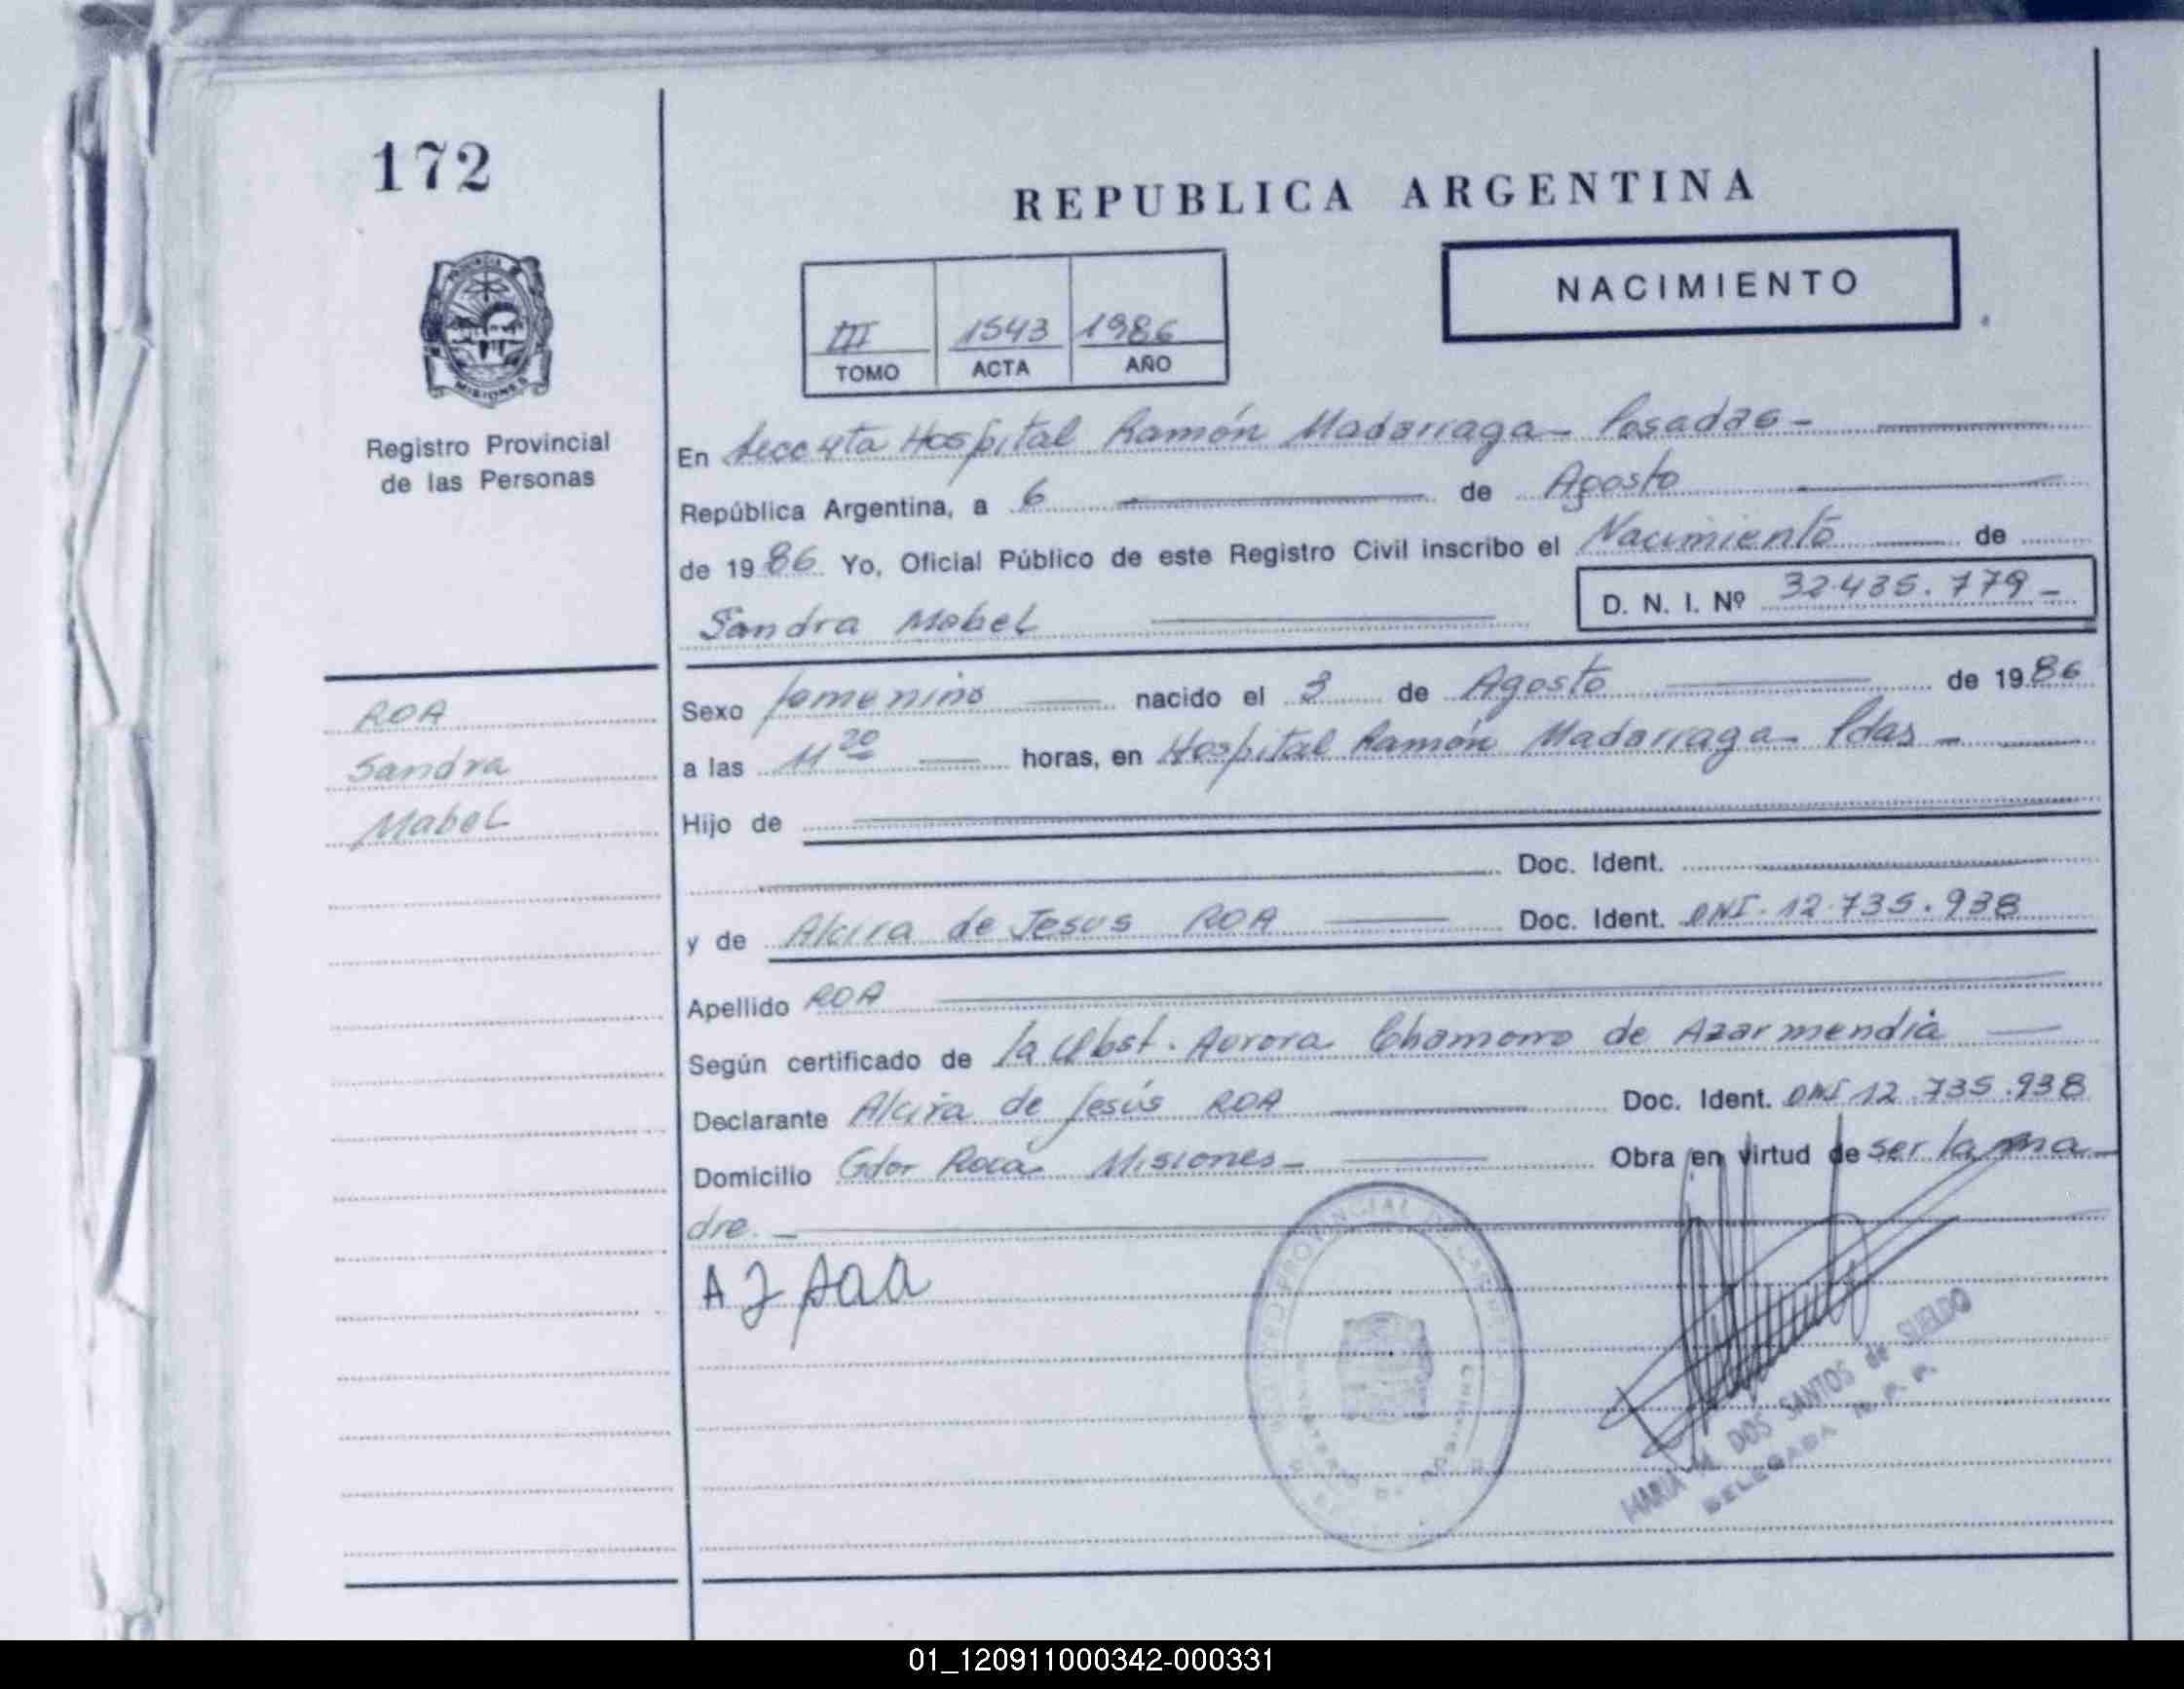 172
REPUBLICA ARGENTINA
NACIMIENTO
III 1543 1986
TOMO ACTA AÑO
Registro Provincial
de las Personas
En Secc 4ta Hospital Ramón Madariaga - Posadas -
República Argentina, a 6 de Agosto
de 1986 Yo, Oficial Público de este Registro Civil inscribo el Nacimiento de
Sandra Mabel D. N. I. Nº 32.435.779 -
ROA
Sandra
Mabel
Sexo femenino nacido el 3 de Agosto de 1986
a las 11 20 horas, en Hospital Ramón Madariaga - Pdas -
Hijo de
Doc. Ident.
y de Alcira de Jesus ROA Doc. Ident. DNI. 12.735.938
Apellido ROA
Según certificado de la Obst. Aurora Chamorro de Azarmendia
Declarante Alcira de Jesús ROA Doc. Ident. DNI 12.735.938
Domicilio Gdor Roca Misiones - Obra en virtud de ser la ma
dre. -
MARIA M. DOS SANTOS de SUELDO
DELEGADA R. P. P.
01_120911000342-000331